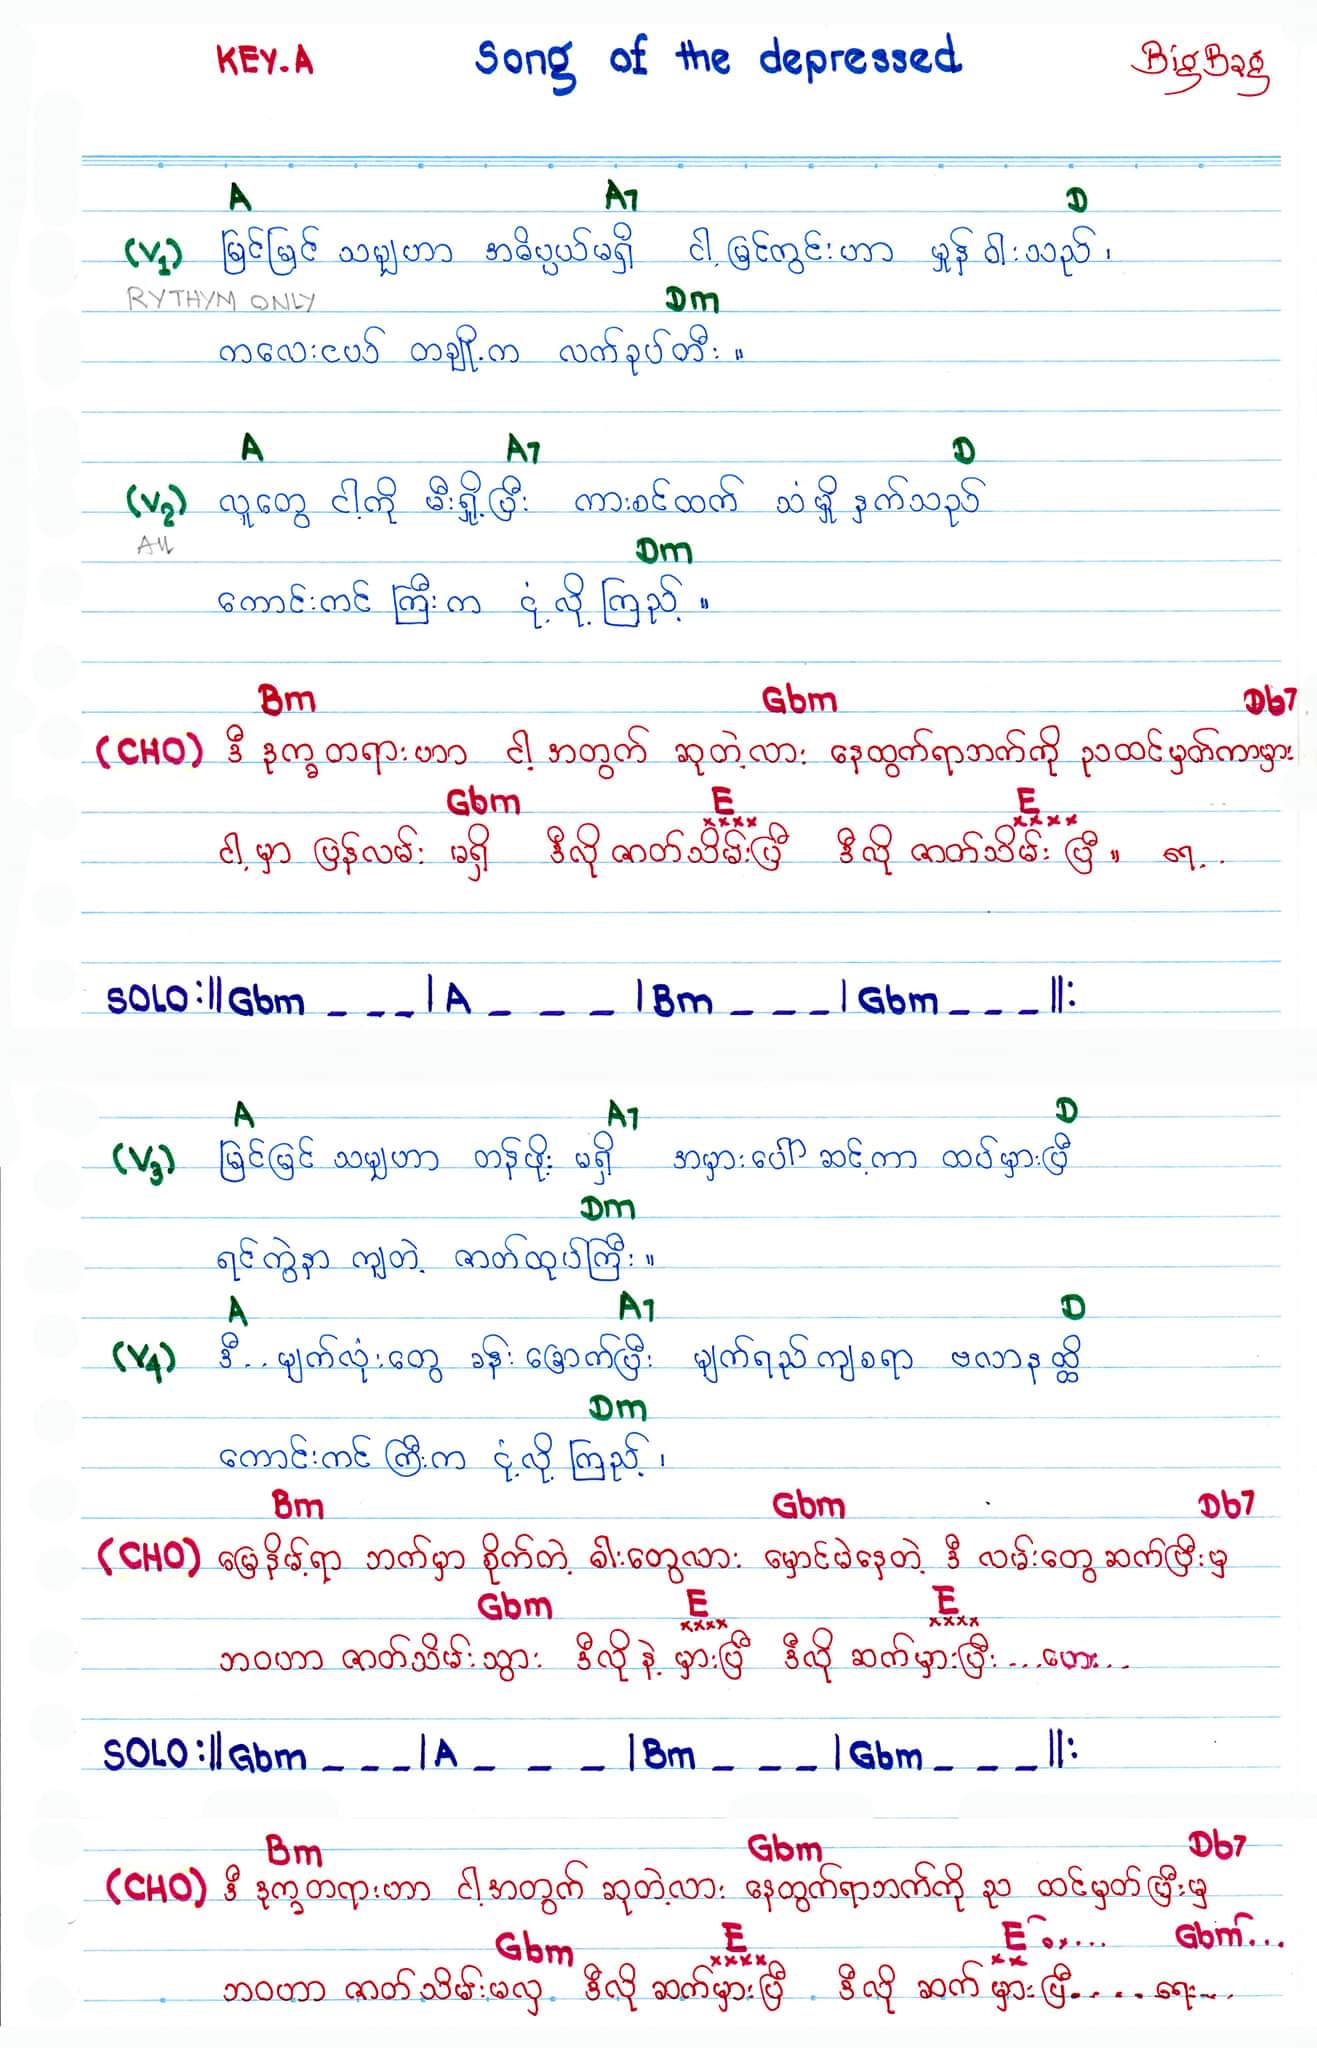 KEY.A Song of the depressed BigBag
A A7 D
(V1) မြင်မြင် သမျှဟာ အဓိပ္ပယ်မရှိ ငါ့ မြင်ကွင်းဟာ မှုန် ဝါးသည်၊
RYTHYM ONLY Dm
ကလေးငယ် တချို့က လက်ခုပ်တီး ။
A A7 D
(V2) လူတွေ ငါ့ကို မီးရှို့ပြီး ကားစင်ထက် သံမှို နှက်သည်
All Dm
ကောင်းကင် ကြီးက ငုံ့ လို့ ကြည့် ။
Bm Gbm Db7
(CHO) ဒီ ဒုက္ခ တရားဟာ ငါ့ အတွက် ဆုတဲ့လား နေထွက်ရာဘက်ကို ညထင်မှတ်ကာမှား
Gbm E E
xxxx xxxx
ငါ့ မှာ ပြန်လမ်း မရှိ ဒီလို ဇာတ်သိမ်းပြီ ဒီလို ဇာတ်သိမ်း ပြီ ။ ရေ့..
SOLO :|| Gbm _ _ _ | A _ _ _ | Bm _ _ _ | Gbm _ _ _ ||:
A A7 D
(V3) မြင်မြင် သမျှဟာ တန်ဖိုး မရှိ အမှားပေါ် ဆင့်ကာ ထပ်မှားပြီ
Dm
ရင်ကွဲနာ ကျတဲ့ ဇာတ်ထုပ်ကြီး ။
A A7 D
(V4) ဒီ.. မျက်လုံးတွေ ခန်း ခြောက်ပြီး မျက်ရည်ကျစရာ ဗလာနတ္ထိ
Dm
ကောင်းကင် ကြီးက ငုံ့ လို့ ကြည့် ၊
Bm Gbm Db7
(CHO) မြေနိမ့်ရာ ဘက်မှာ စိုက်တဲ့ ဓါးတွေလား မှောင်မဲနေတဲ့ ဒီ လမ်းတွေ ဆက်ပြီးမှ
Gbm E E
xxxx xxxx
ဘဝဟာ ဇာတ်သိမ်းသွား ဒီလို နဲ့ မှားပြီ ဒီလို ဆက်မှားပြီး ... ဟေး...
SOLO :|| Gbm _ _ _ | A _ _ _ | Bm _ _ _ | Gbm _ _ _ ||:
Bm Gbm Db7
(CHO) ဒီ ဒုက္ခတရားဟာ ငါ့အတွက် ဆုတဲ့လား နေထွက်ရာဘက်ကို ည ထင်မှတ်ပြီးမှ
Gbm E E Gbm...
xxxx xx
ဘဝဟာ ဇာတ်သိမ်းမလှ ဒီလို ဆက်မှားပြီ ဒီလို ဆက် မှား ပြီ..... ရေး...